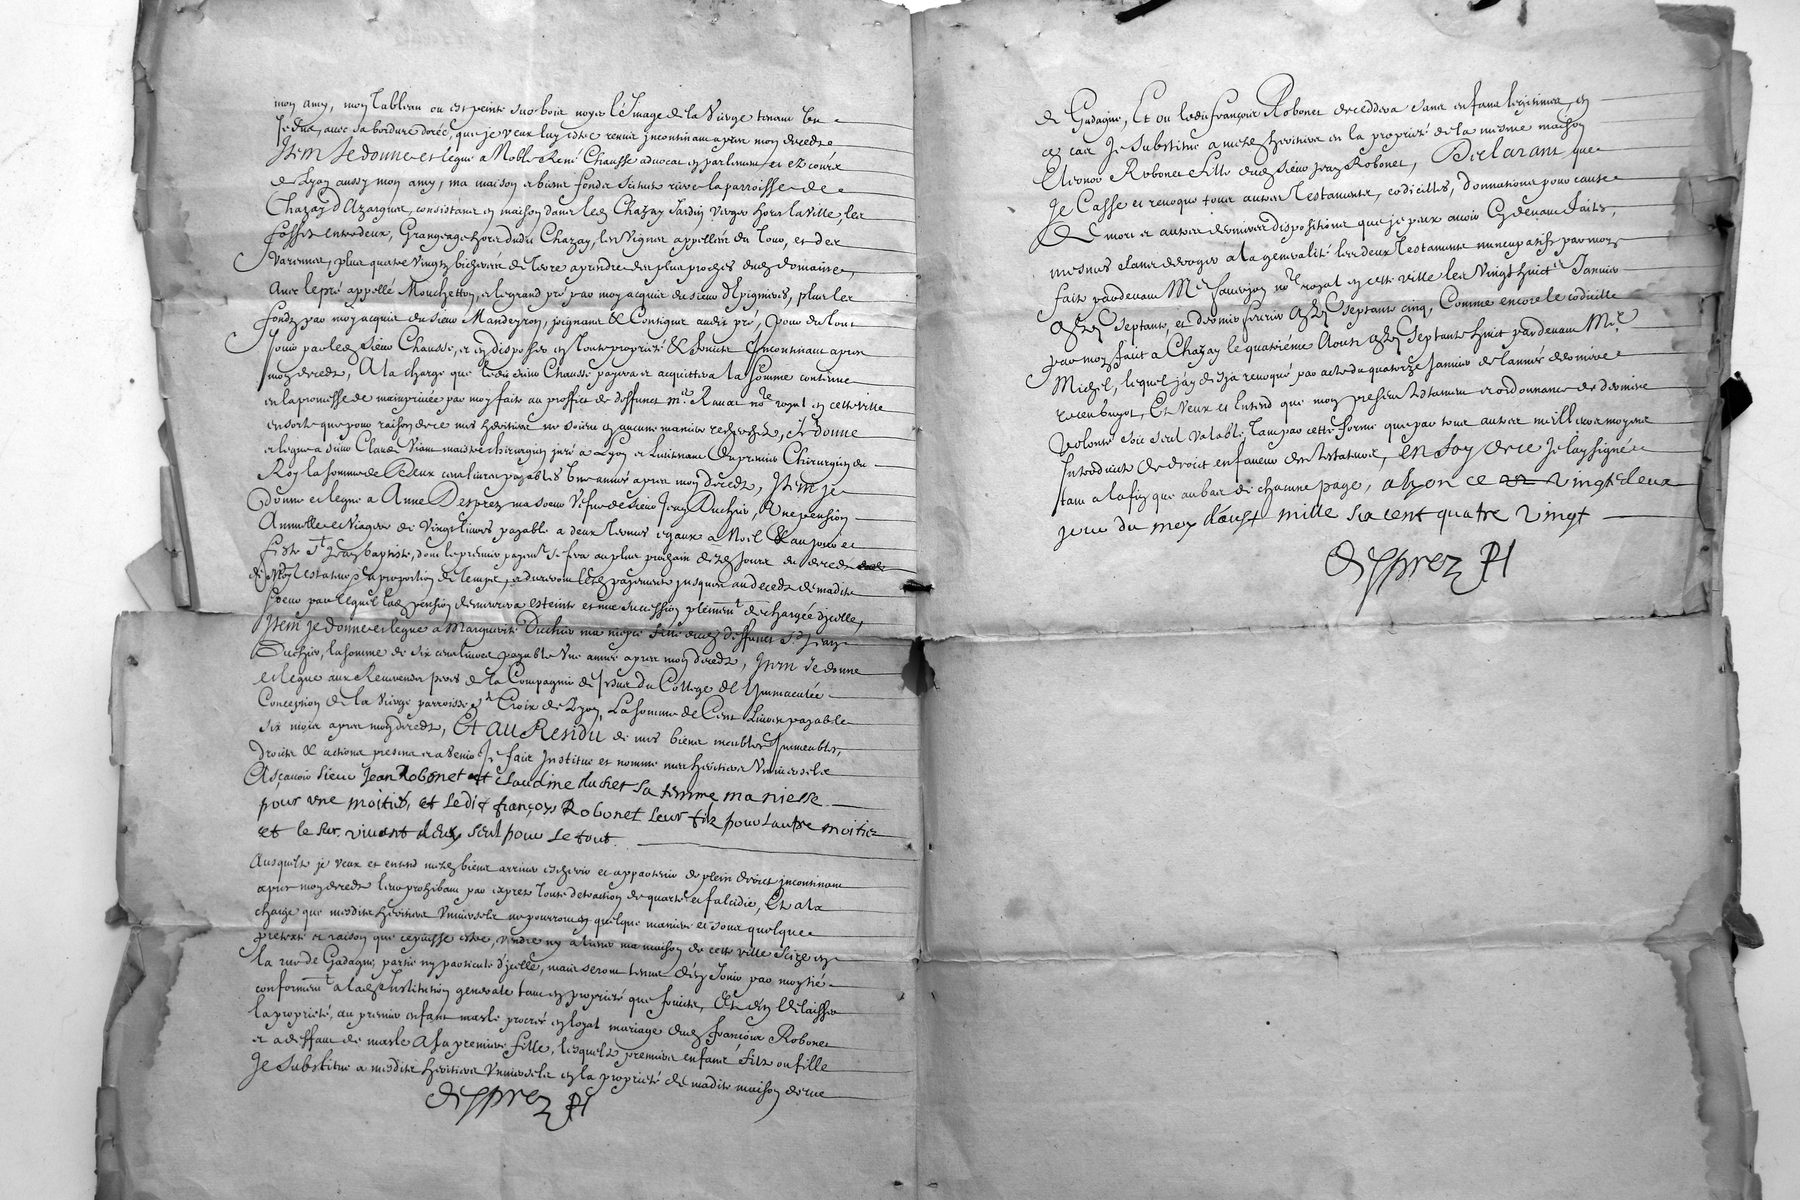 mon amy, mon Tableau ou est peinte sur bois noyer l'Image de la Vierge tenant un
Jesus, avec sa bordure dorée, que je veux luy estre remis incontinant apres mon decedz
Item Je donne et legue a Noble René Chausse advocat en parlement et ez cours
de Lyon aussy mon amy, ma maison et biens fondz scitués rière la parroisse de
Chazay d'Azargues, consistants en maison dans led. Chazay Jardin, verger hors la ville, les
fossez entredeux, Grangeage hors dudit Chazay, les vignes appellées du Tour, et des
Varennes, plus quatre vingtz bicherées de terre a prendre des plus proches dud. domaine,
Avec le pré appellé Mouchetton, et le grand pré par moy acquis du sieur d'Epignieres, plus les
fondz par moy acquis du sieur Mandeyron, joignant & contigus audit pré, pour du tout
Jouir par led. sieur Chausse, et en disposer en toute propriété & fruicts incontinant apres
mon decedz, A la charge que ledit sieur Chausse payera et acquittera la somme contenue
en la promesse de main privée par moy faite au proffict de deffunct Me Ravat nore royal en cette ville
en sorte que pour raison de ce mes heritiers ne soient en aucune maniere recherchez, Je donne
et legue a sieur Claude Viam maistre chirurgien juré a Lyon et Lieutenant du premier Chirurgien du
Roy la somme de Deux cens livres payables une année apres mon decedz, Item je
Donne et legue a Anne Desprez ma soeur Vefve de sieur Jean Duchier, Une pension
Annuelle et viagere de vingt livres payable a deux termes egaux a Noël & au jour et
feste St Jean baptiste, dont le premier payemt se fera au plus prochain desd. jours du decedz
de Moy testateur a proportion de temps, et dureront lesd. payements jusques au decedz de madite
soeur par lequel lad. pension demeurera esteinte et ma succession plenemt dechargée d'icelle,
Item Je donne et legue a Marguerite Duchier ma niepce fille dud. deffunct Sr Jean
Duchier, la somme de six cens livres payable une année apres mon decedz, Item Je donne
et legue aux Reverends peres de la Compagnie de Jesus du College de l'Immaculée
Conception de la Vierge parroisse Ste Croix de Lyon, La somme de Cent Livres payable
six mois apres mon decedz, Et AU Residu de mes biens meubles Immeubles,
droits & actions presents et a venir Je fais Institue et nomme mes heritiers Universels
Asçavoir sieur Jean Robonet et claudine duchet sa femme ma niesse
pour une moitié, et ledit françois Robonet leur fils pour lautre moitié
et le sur-vivant deux seul pour le tout.
Ausquels je veux et entend mesd. biens arriver escheoir et appartenir de plein droict incontinant
apres mon decedz leur prohibant par expres toute detraction de quarte et falcidie, Et a la
charge que mesdits heritiers Universels ne pourront en quelque maniere et sous quelque
pretexte et raison que ce puisse estre, vendre ny aliener ma maison de cette ville Scize en
la rue de Gadagne, partie ny particule d'icelle, mais seront tenus d'en Jouir par moytié
conformemt a lad. Institution generale tant en propriété que fruicts, Et d'en delaisser
la propriété, au premier enfant masle procreé en loyal mariage dud. françois Robonet
et a deffaut de masle A sa premiere fille, lesquels premiers enfant fils ou fille
Je substitue a mesdits heritiers Universels en la propriété de madite maison de rue
desprez
de Gadagne, Et ou ledit françois Robonet decedderoit sans enfans legitimes, en
ce cas Je substitue a mesd. heritiers en la propriété de la mesme maison
Eleonor Robonet fille dud. sieur Jean Robonet, Declarant que
Je Casse et revoque tous autres Testaments, codicilles, donnations pour cause
De mort et autres dernieres dispositions que je peux avoir cy devant faites,
mesmes sans deroger a la generalité les deux testaments nuncupatifs par moy
faits pardevant Me fauvyon nore royal en cette ville les Vingt huict Janvier
septante, et dernier fevrier septante cinq, Comme encore le codicille
par moy fait a Chazay le quatriéme Aoust septante huict pardevant Me
Michel, lequel j'ay desja revoqué par acte du quatorze Janvier de l'année derniere
receu bugot, Et Veux et Entend que mon present testament et ordonnance de derniere
volonté soit seul valable tant par cette forme que par tous autres meilleurs moyens
Introduits de droict en faveur des testateurs, en foy de ce Je lay signé
tant a la fin que au bas de chacune page, a lyon ce vingt deux
jour du moy d'aust mille six cent quatre vingt
desprez